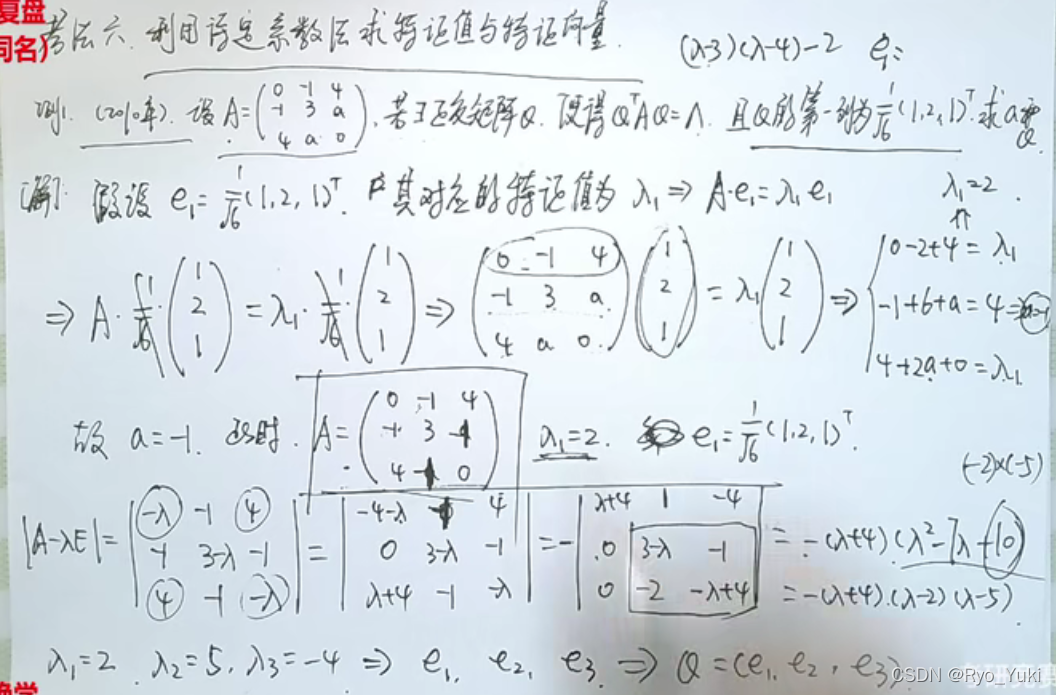 复盘
同名)
考法六. 利用待定系数法求特征值与特征向量.
(λ-3)(λ-4)-2 e₁:
例1. (2010年). 设 A=(0 -1 4; -1 3 a; 4 a 0), 若∃正交矩阵Q. 使得 QᵀAQ=Λ. 且Q的第一列为 1/√6 (1,2,1)ᵀ. 求a和Q.
[解]: 假设 e₁= 1/√6 (1,2,1)ᵀ. 其对应的特征值为 λ₁ ⇒ A·e₁=λ₁e₁
λ₁=2.
⇒ A· 1/√6 · (1; 2; 1) = λ₁· 1/√6 · (1; 2; 1) ⇒ (0 -1 4; -1 3 a; 4 a 0) (1; 2; 1) = λ₁ (1; 2; 1) ⇒ { 0-2+4=λ₁
-1+6+a=4 ⇒ a=-1
4+2a+0=λ₁
故 a=-1. 此时. A=(0 -1 4; -1 3 -1; 4 -1 0) λ₁=2. e₁= 1/√6 (1,2,1)ᵀ.
(-2)×(-5)
|A-λE|= |-λ -1 4; -1 3-λ -1; 4 -1 -λ| = |-4-λ -1 4; 0 3-λ -1; λ+4 -1 -λ| = - |λ+4 1 -4; 0 3-λ -1; 0 -2 -λ+4| = -(λ+4)(λ²-7λ+10)
= -(λ+4).(λ-2)(λ-5)
λ₁=2 λ₂=5. λ₃=-4 ⇒ e₁, e₂, e₃ ⇒ Q=(e₁, e₂, e₃)
CSDN @Ryo_Yuki